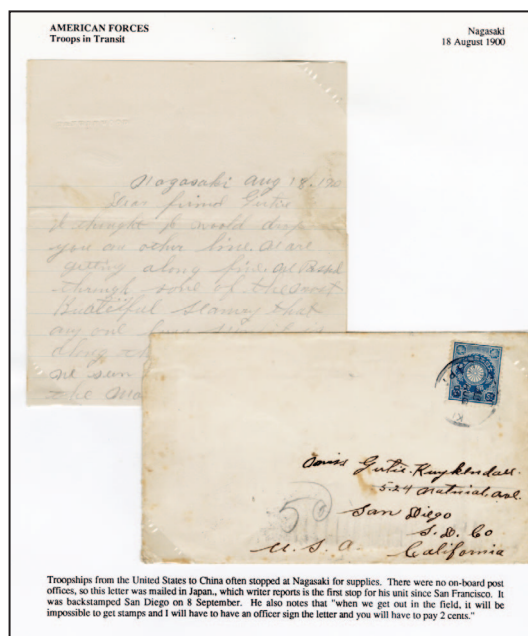 AMERICAN FORCES
Troops in Transit
Nagasaki
18 August 1900
Nagasaki Aug 18. 190
Dear friend Gertie
I thought I would drop
you an other line. We are
getting along fine. We
through some of the most
that
any one
along th
we
the
Miss Gertie Kuykendall.
524 National Ave.
San Diego
S. D. Co
U. S. A. California
50
Troopships from the United States to China often stopped at Nagasaki for supplies. There were no on-board post
offices, so this letter was mailed in Japan., which writer reports is the first stop for his unit since San Francisco. It
was backstamped San Diego on 8 September. He also notes that "when we get out in the field, it will be
impossible to get stamps and I will have to have an officer sign the letter and you will have to pay 2 cents."